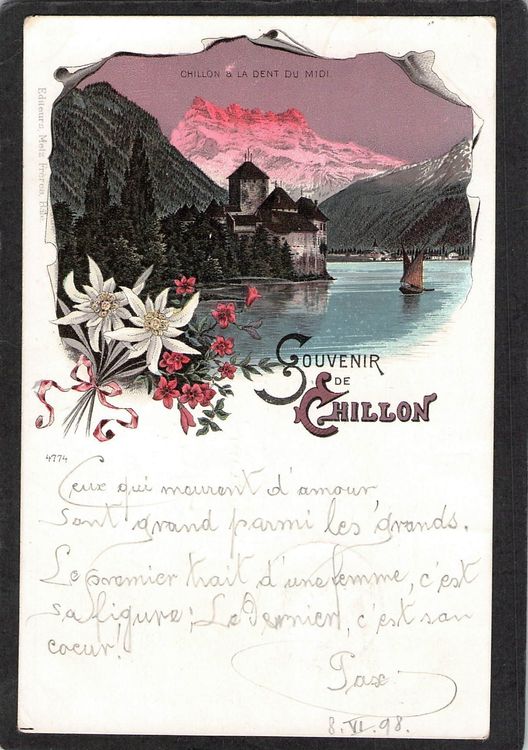 CHILLON & LA DENT DU MIDI.
Editeurs, Metz Frères, Bâle
SOUVENIR
DE
CHILLON
4774
Ceux qui meurent d'amour
sont grand parmi les grands.
Le premier trait d'une femme, c'est
sa figure; Le Dernier, c'est son
coeur!
Pax
8. VI. 98.